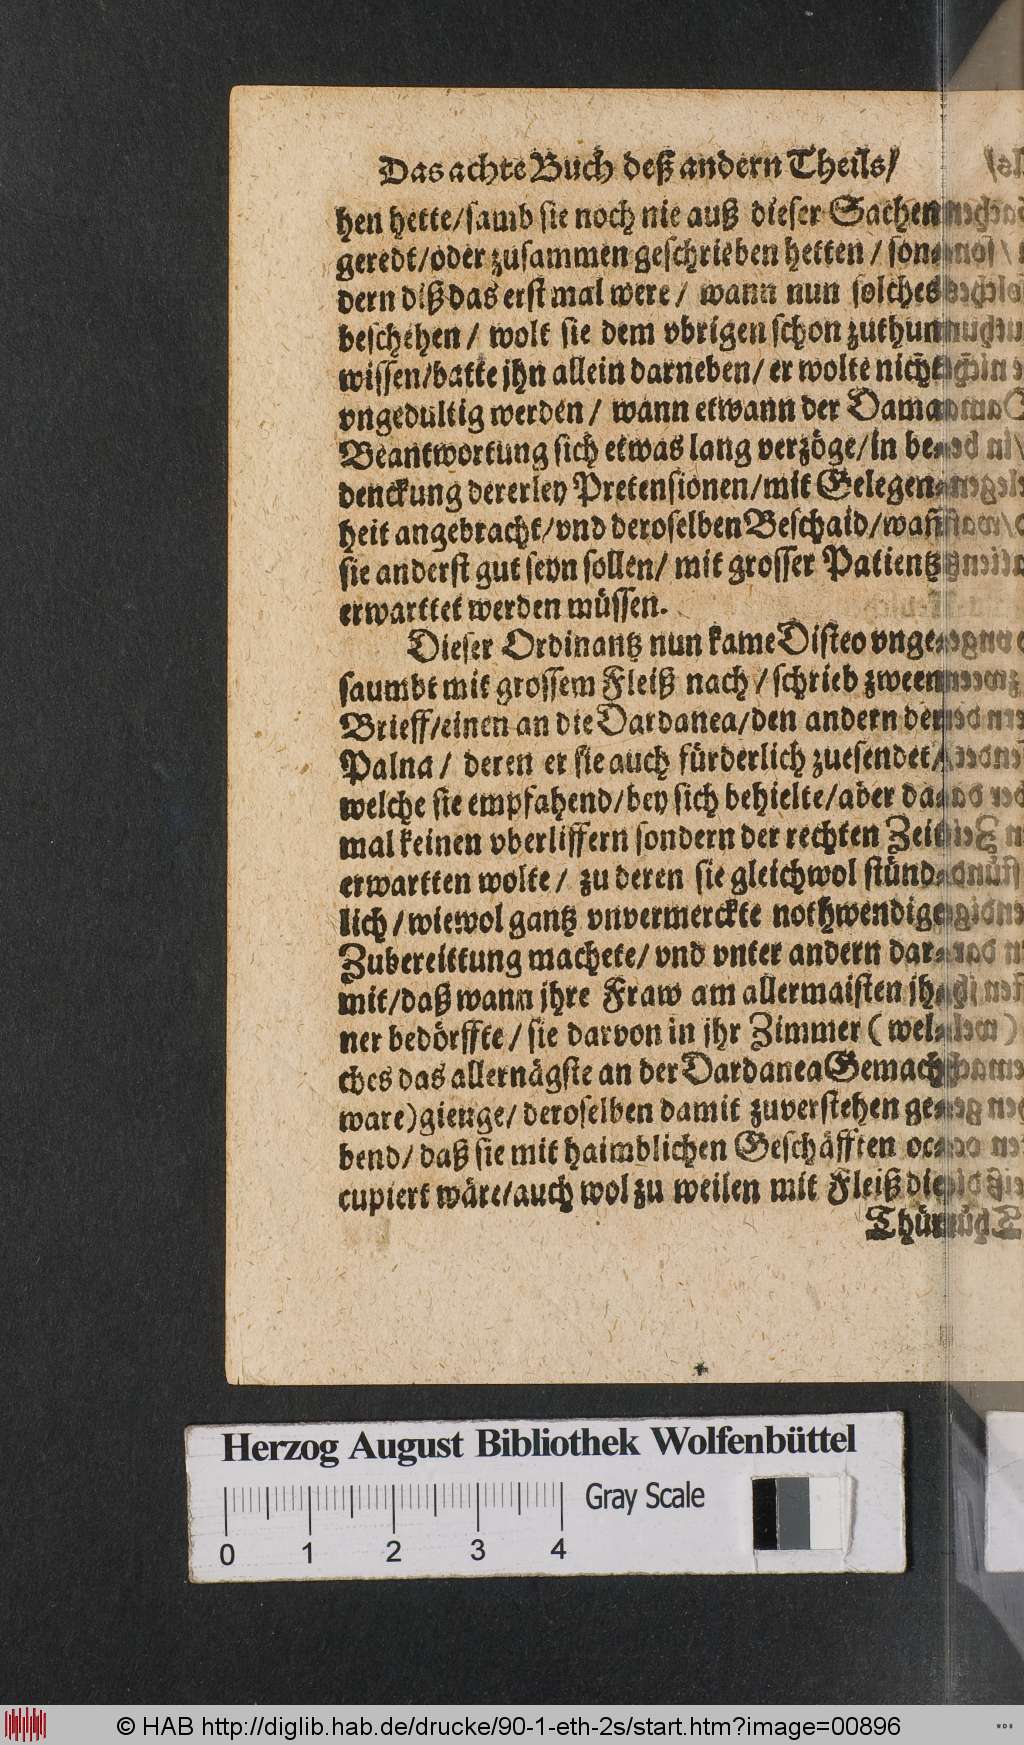 Das achte Buch deß andern Theils/
hen hette/samb sie noch nie auß dieser Sachen
geredt/oder zusammen geschrieben hetten / son-
dern diß das erst mal were / wann nun solches
beschehen / wolt sie dem vbrigen schon zuthun
wissen/batte jhn allein darneben/ er wolte nicht
vngedultig werden / wann etwann der Dama
Beantwortung sich etwas lang verzöge/in be-
denckung dererley Pretensionen/mit Gelegen-
heit angebracht/vnd deroselben Beschaid/wañ
sie anderst gut seyn sollen/ mit grosser Patientz
erwarttet werden müssen.
Dieser Ordinantz nun kame Disteo vnge-
saumbt mit grossem Fleiß nach / schrieb zween
Brieff/einen an die Dardanea/den andern der
Palna / deren er sie auch fürderlich zuesendet/
welche sie empfahend/bey sich behielte/aber da-
mal keinen vberliffern sondern der rechten Zeit
erwartten wolte / zu deren sie gleichwol stünd-
lich / wiewol gantz vnvermerckte nothwendige
Zubereittung machete/ vnd vnter andern dar-
mit/daß wann jhre Fraw am allermaisten jh-
ner bedörffte / sie darvon in jhr Zimmer ( wel-
ches das allernägste an der Dardanea Gemach
ware)gienge/ deroselben damit zuverstehen ge-
bend/ daß sie mit haimblichen Geschäfften oc-
cupiert wäre/auch wol zu weilen mit Fleiß die
Thür
Herzog August Bibliothek Wolfenbüttel
Gray Scale
0 1 2 3 4
© HAB http://diglib.hab.de/drucke/90-1-eth-2s/start.htm?image=00896